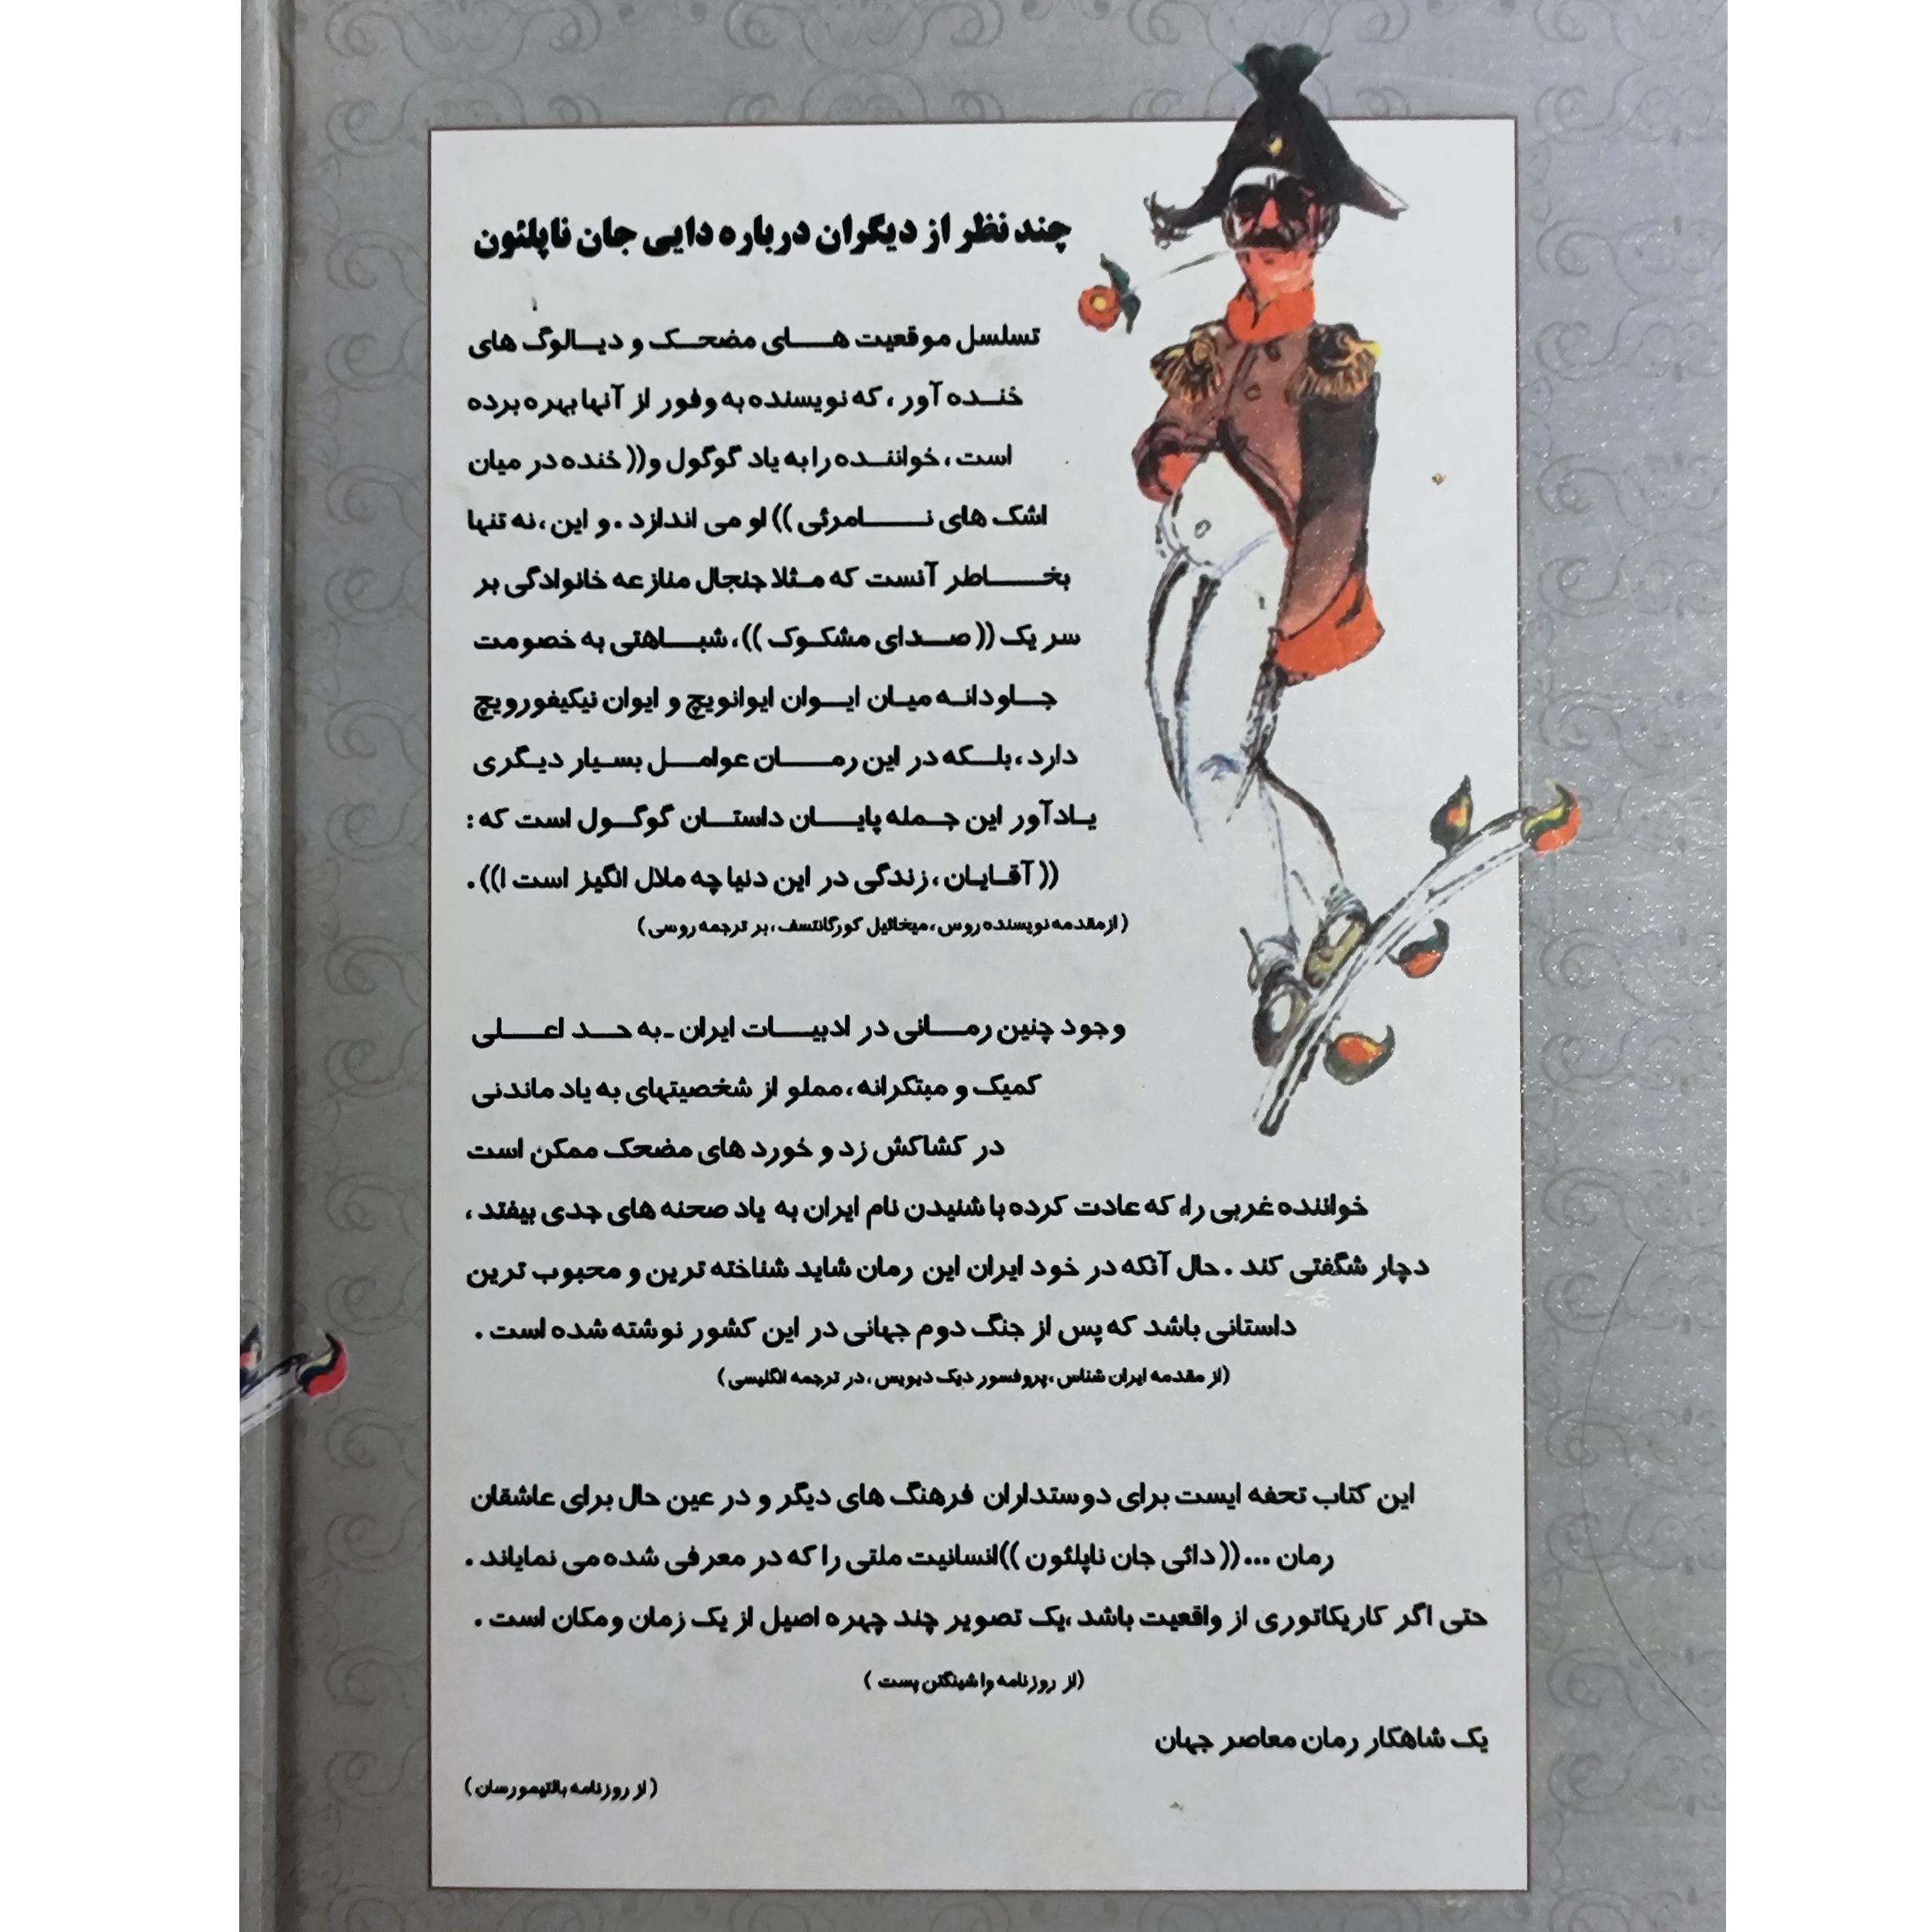 چند نظر از دیگران درباره دایی جان ناپلئون
تسلسل موقعیت های مضحک و دیالوگ های
خنده آور ، که نویسنده به وفور از آنها بهره برده
است ، خواننده را به یاد گوگول و (( خنده در میان
اشک های نامرئی )) او می اندازد . و این ، نه تنها
بخاطر آنست که مثلا جنجال منازعه خانوادگی بر
سر یک (( صدای مشکوک )) ، شباهتی به خصومت
جاودانه میان ایوان ایوانویچ و ایوان نیکیفورویچ
دارد ، بلکه در این رمان عوامل بسیار دیگری
یادآور این جمله پایان داستان گوگول است که :
(( آقایان ، زندگی در این دنیا چه ملال انگیز است !)) .
( از مقدمه نویسنده روس ، میخائیل کورگانتسف ، بر ترجمه روسی )
وجود چنین رمانی در ادبیات ایران - به حد اعلی
کمیک و مبتکرانه ، مملو از شخصیتهای به یاد ماندنی
در کشاکش زد و خورد های مضحک ممکن است
خواننده غربی را، که عادت کرده با شنیدن نام ایران به یاد صحنه های جدی بیفتد ،
دچار شگفتی کند . حال آنکه در خود ایران این رمان شاید شناخته ترین و محبوب ترین
داستانی باشد که پس از جنگ دوم جهانی در این کشور نوشته شده است .
(از مقدمه ایران شناس ، پروفسور دیک دیویس ، در ترجمه انگلیسی )
این کتاب تحفه ایست برای دوستداران فرهنگ های دیگر و در عین حال برای عاشقان
رمان ... (( دائی جان ناپلئون )) انسانیت ملتی را که در معرفی شده می نمایاند .
حتی اگر کاریکاتوری از واقعیت باشد ،یک تصویر چند چهره اصیل از یک زمان ومکان است .
(از روزنامه واشینگتن پست )
یک شاهکار رمان معاصر جهان
( از روزنامه بالتیمورسان )